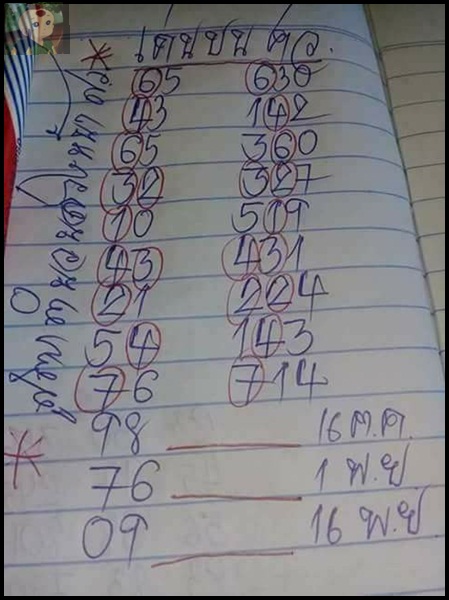 * เด่นชน ตว.
65 630
43 142
65 360
32 327
10 519
43 431
21 224
54 143
76 714
98 16 ต.ค.
* 76 1 พ.ย
09 16 พ.ย